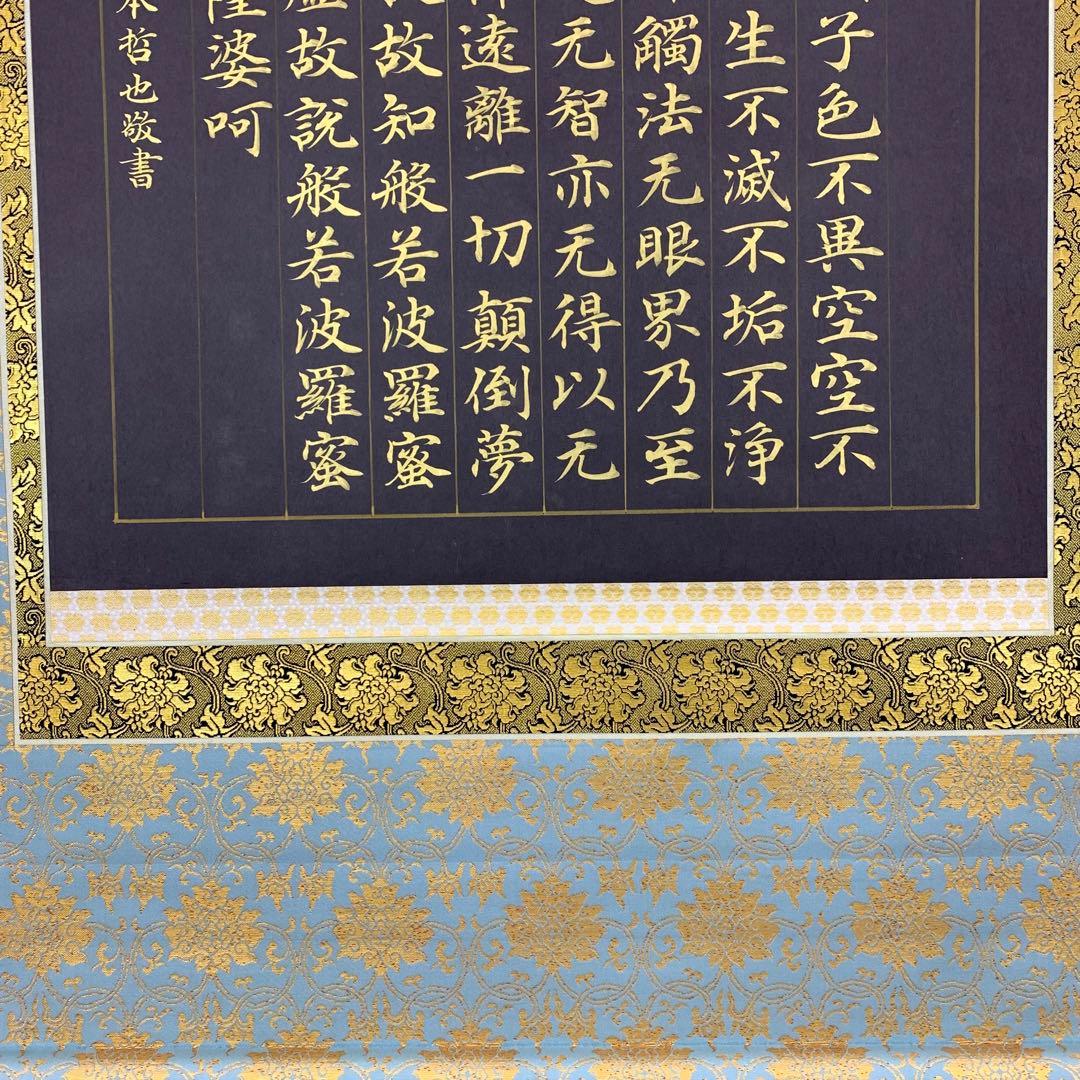 子色不異空空不
生不滅不垢不浄
觸法无眼界乃至
无智亦无得以无
遠離一切顛倒夢
故知般若波羅蜜
故説般若波羅蜜
婆呵
本哲也敬書